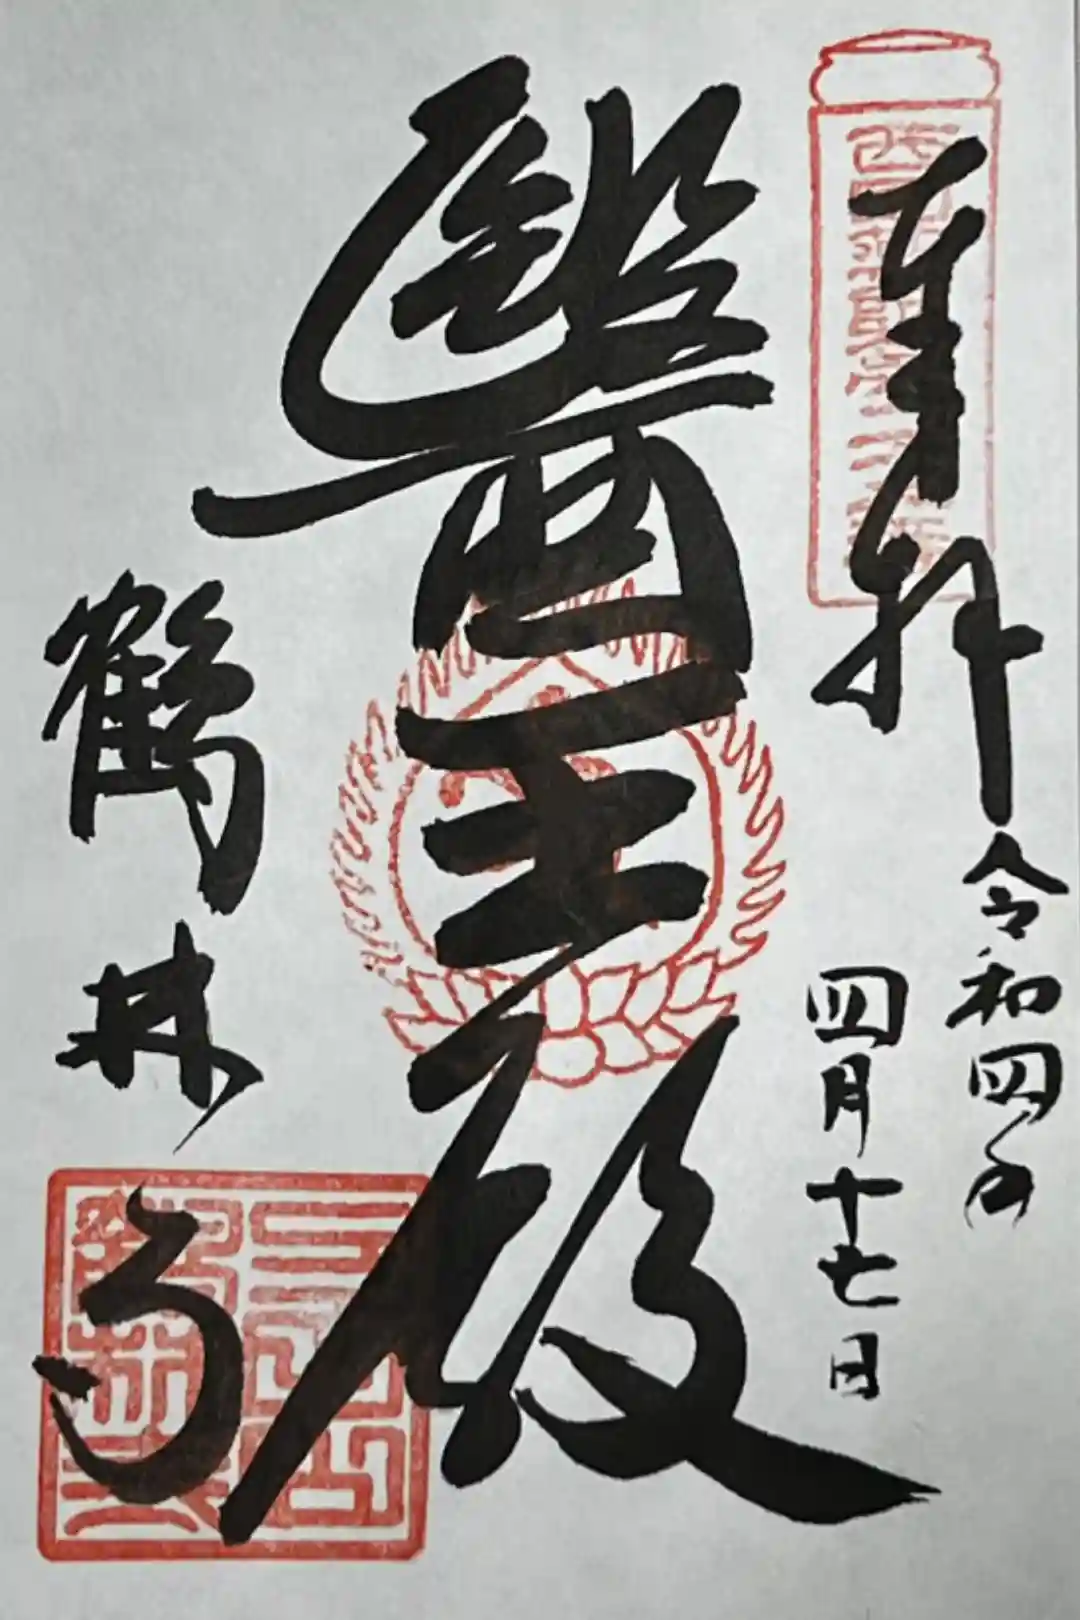 奉拝
令和四年
四月十七日
醫王殿
鶴林寺